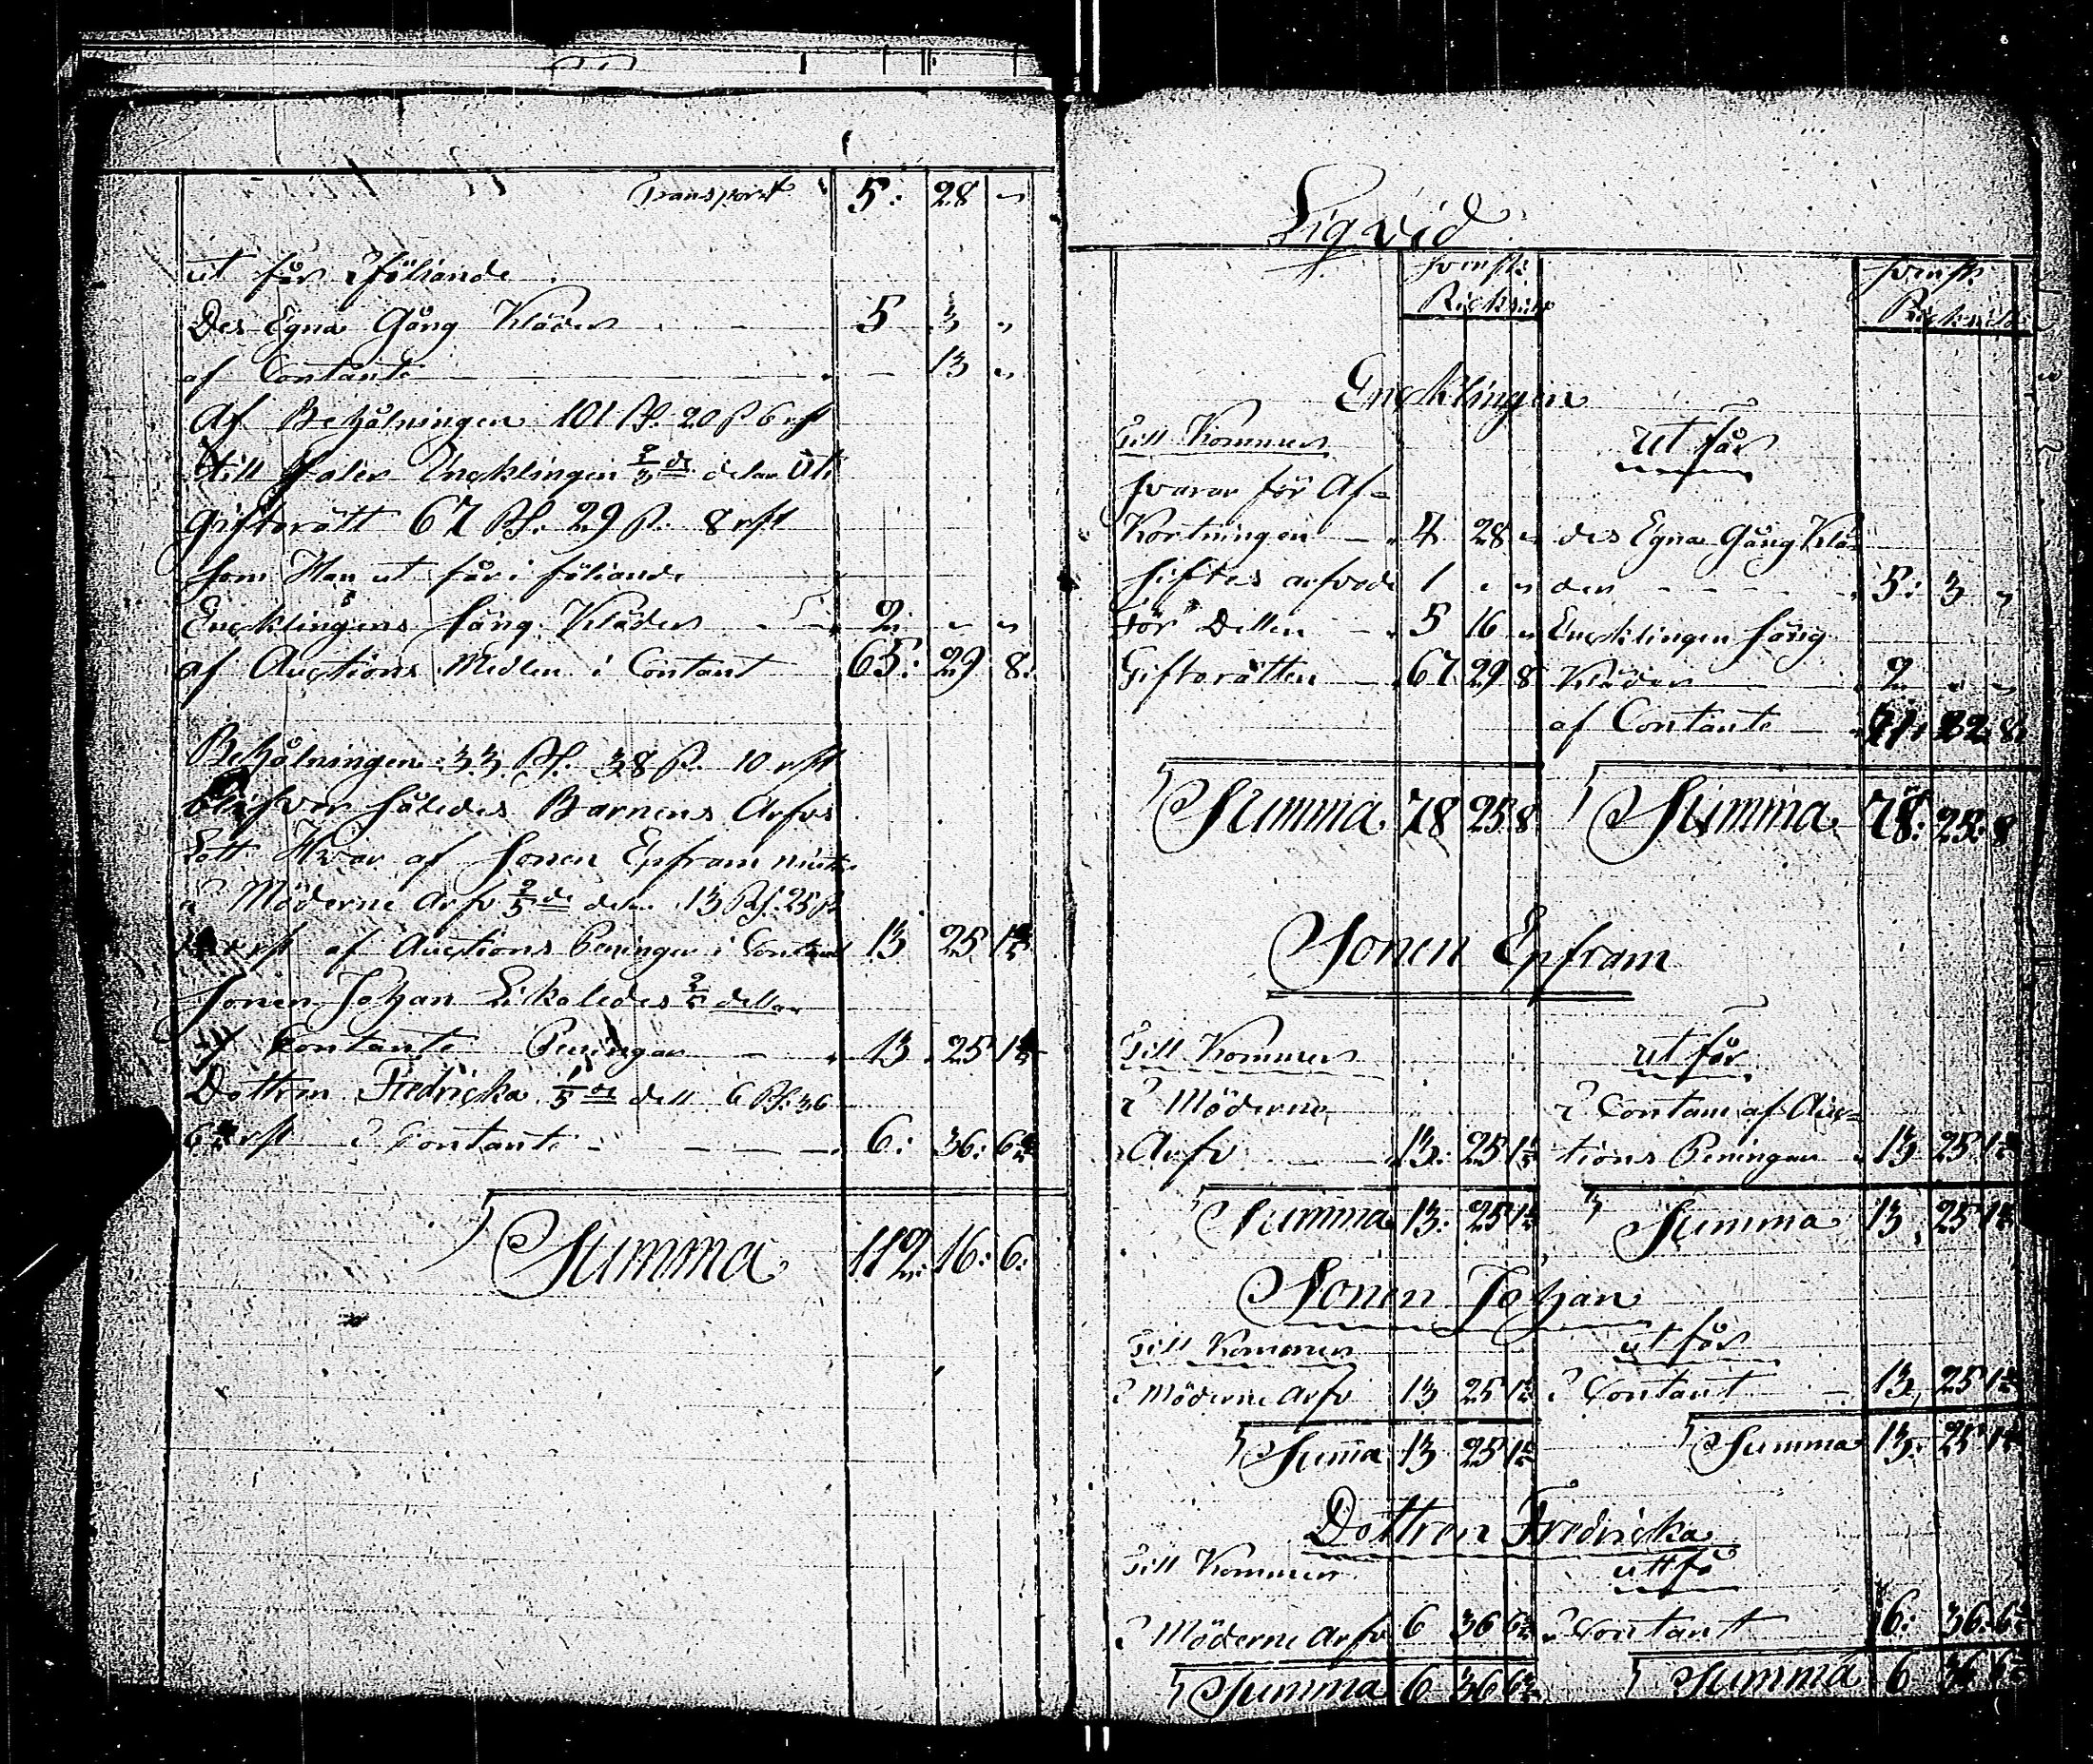 Transport 5: 28 "
ut får följande
Des Egna Gång Kläder 5 3 "
af Contante 13 "
Af Behålningen 101 R. 20 s 6 rst
till faler Encklingen 2/3 de delar Uti
giftorätt 67 R. 29 s. 8 rst
som Han ut får i föliande
Encklingens Säng Kläder 2 " "
af Auctions Medlen i Contant 65: 29 8:
Behålningen 33 R. 38 s. 10 rst
blifver således Barnens Arfvs
Lott Hvar af Sonen Epfram
i Möderne Arfv 2/5 de delar 13 R. 25 s
rst af Auctions Peningar i Contant 13 25 1 2/5
Sonen Johan Likaledes 2/5 dellar
af Contante Peningar 13. 25 1 2/5
Dottren Fredricka 1/5 de dell 6 R. 36
rst i Contante 6: 36: 6 4/5
Summa 112. 16: 6.
Liqvid
Svensk Svensk
Ricksd. Ricksd.
Encklingen
Till Kommer ut får
Svarar för Af=
Kortningen 4 28 " des Egna Gång Klä=
Siftes arfvode 1 " " der 5: 3 "
för Dellen 5 16 " Encklingen Säng
Giftorätten 67 29 8 Kläder 2 " "
af Contante 71. 22. 8.
Summa 78 25 8 Summa 78: 25: 8
Sonen Epfram
Till Kommer ut får
i Möderne i Contant af Auc=
Arfv 13: 25 1 2/5 tions Peningar 13 25 1 2/5
Summa 13: 25 1 2/5 Summa 13 25 1 2/5
Sonen Johan
Till Kommer ut får
i Möderne Arfv 13 25 1 2/5 i Contant 13 25 1 2/5
Summa 13 25 1 2/5 Summa 13: 25 1 2/5
Dottren Fredricka
Till Kommer utt få
i Möderne Arfv 6 36 6 i Contant 6: 36: 6
Summa 6 36 6 Summa 6 36 6